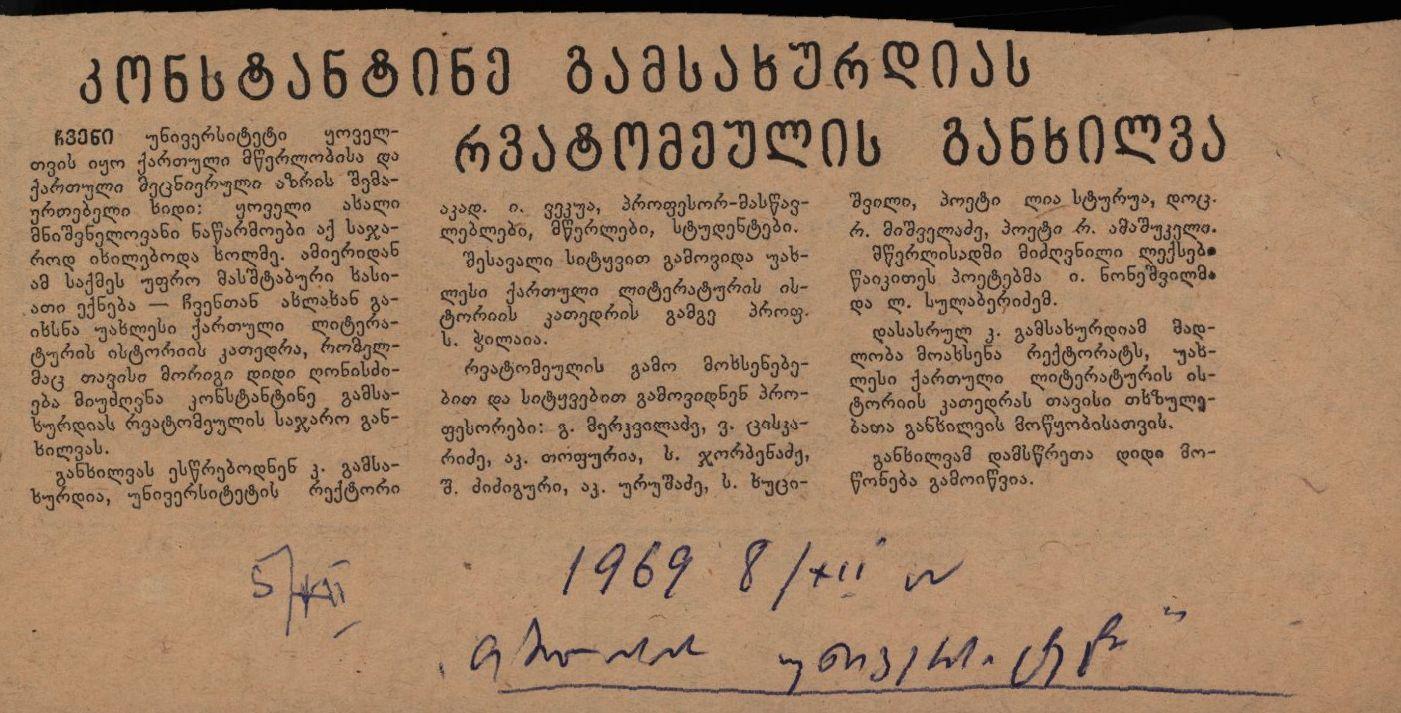 კონსტანტინე გამსახურდიას
რვატომეულის განხილვა
ჩვენი უნივერსიტეტი ყოველ-
თვის იყო ქართული მწერლობისა და
ქართული მეცნიერული აზრის შემა-
ერთებელი ხიდი: ყოველი ახალი
მნიშვნელოვანი ნაწარმოები აქ საჯა-
როდ იხილებოდა ხოლმე. ამიერიდან
ამ საქმეს უფრო მასშტაბური ხასი-
ათი ექნება — ჩვენთან ახლახან გა-
იხსნა უახლესი ქართული ლიტერა-
ტურის ისტორიის კათედრა, რომელ-
მაც თავისი მორიგი დიდი ღონისძი-
ება მიუძღვნა კონსტანტინე გამსა-
ხურდიას რვატომეულის საჯარო გან-
ხილვას.
განხილვას ესწრებოდნენ კ. გამსა-
ხურდია, უნივერსიტეტის რექტორი
აკად. ი. ვეკუა, პროფესორ-მასწავ-
ლებლები, მწერლები, სტუდენტები.
შესავალი სიტყვით გამოვიდა უახ-
ლესი ქართული ლიტერატურის ის-
ტორიის კათედრის გამგე პროფ.
ს. ჭილაია.
რვატომეულის გამო მოხსენებე-
ბით და სიტყვებით გამოვიდნენ პრო-
ფესორები: გ. მერკვილაძე, ვ. ცისკა-
რიძე, აკ. თოფურია, ს. ჯორბენაძე,
შ. ძიძიგური, აკ. ურუშაძე, ს. ხუცი-
შვილი, პოეტი ლია სტურუა, დოც.
რ. მიშველაძე, პოეტი რ. ამაშუკელი.
მწერლისადმი მიძღვნილი ლექსები
წაიკითეს პოეტებმა ი. ნონეშვილმა
და ლ. სულაბერიძემ.
დასასრულ კ. გამსახურდიამ მად-
ლობა მოახსენა რექტორატს, უახ-
ლესი ქართული ლიტერატურის ის-
ტორიის კათედრას თავისი თხზულე-
ბათა განხილვის მოწყობისათვის.
განხილვამ დამსწრეთა დიდი მო-
წონება გამოიწვია.
5/XII
1969 8/XII